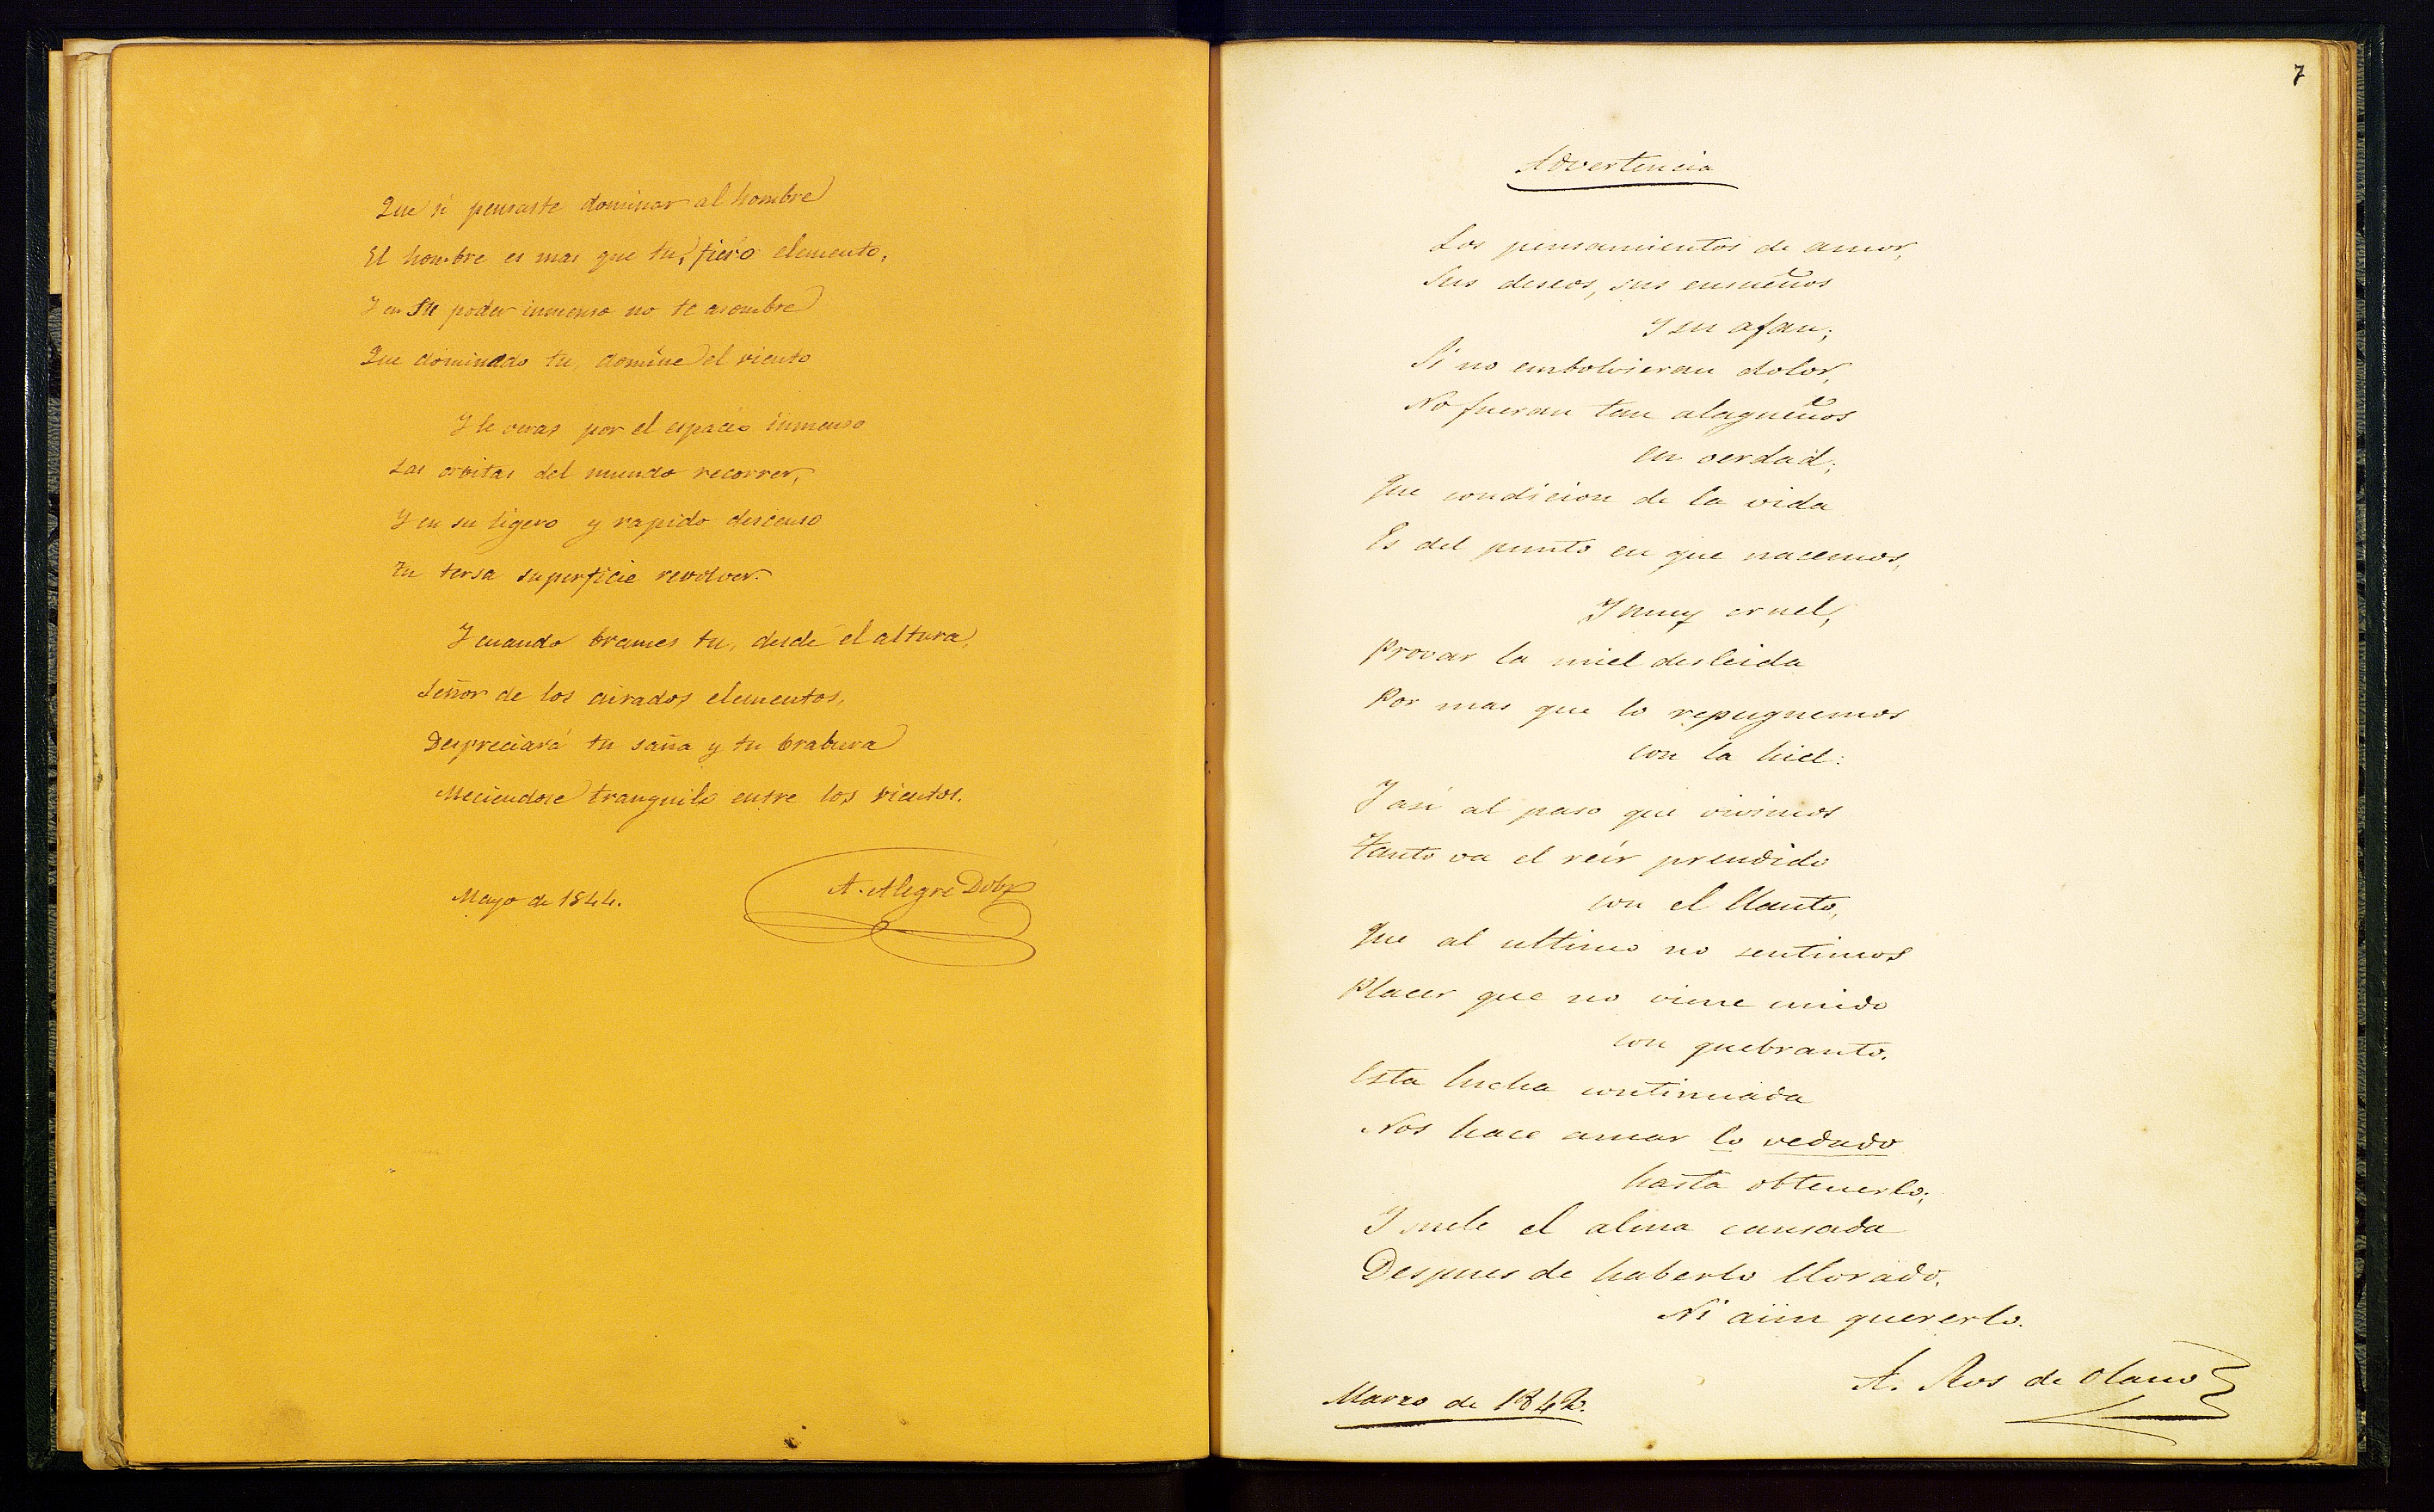 Que si pensaste dominar al hombre
El hombre es mas que tu, fiero elemento,
Y en su poder inmenso no te asombre
Que dominado tu, domine el viento
Y le veras por el espacio inmenso
Las orbitas del mundo recorrer,
Y en su ligero y rapido descenso
Tu tersa superficie revolver.
Y cuando brames tu, desde el altura,
Señor de los airados elementos,
Despreciará tu saña y tu brabura
Meciendose tranquilo entre los vientos.
Mayo de 1844.
A. Alegre Dolz
7
Advertencia
Los pensamientos de amor,
Sus deseos, sus ensueños
Y su afan;
Si no embolvieran dolor,
No fueran tan alagueños
en verdad;
Que condicion de la vida
Es del punto en que nacemos,
Y muy cruel,
Provar la miel desleida
Por mas que lo repugnemos
con la hiel:
Y asi al paso que vivimos
Tanto va el reir prendido
con el llanto,
Que al ultimo no sentimos
Placer que no viene unido
con quebranto.
Esta lucha continuada
Nos hace amar lo vedado
hasta obtenerlo;
Y suele el alma cansada
Despues de haberlo llorado,
Ni aun quererlo.
A. Ros de Olano
Marzo de 1842.